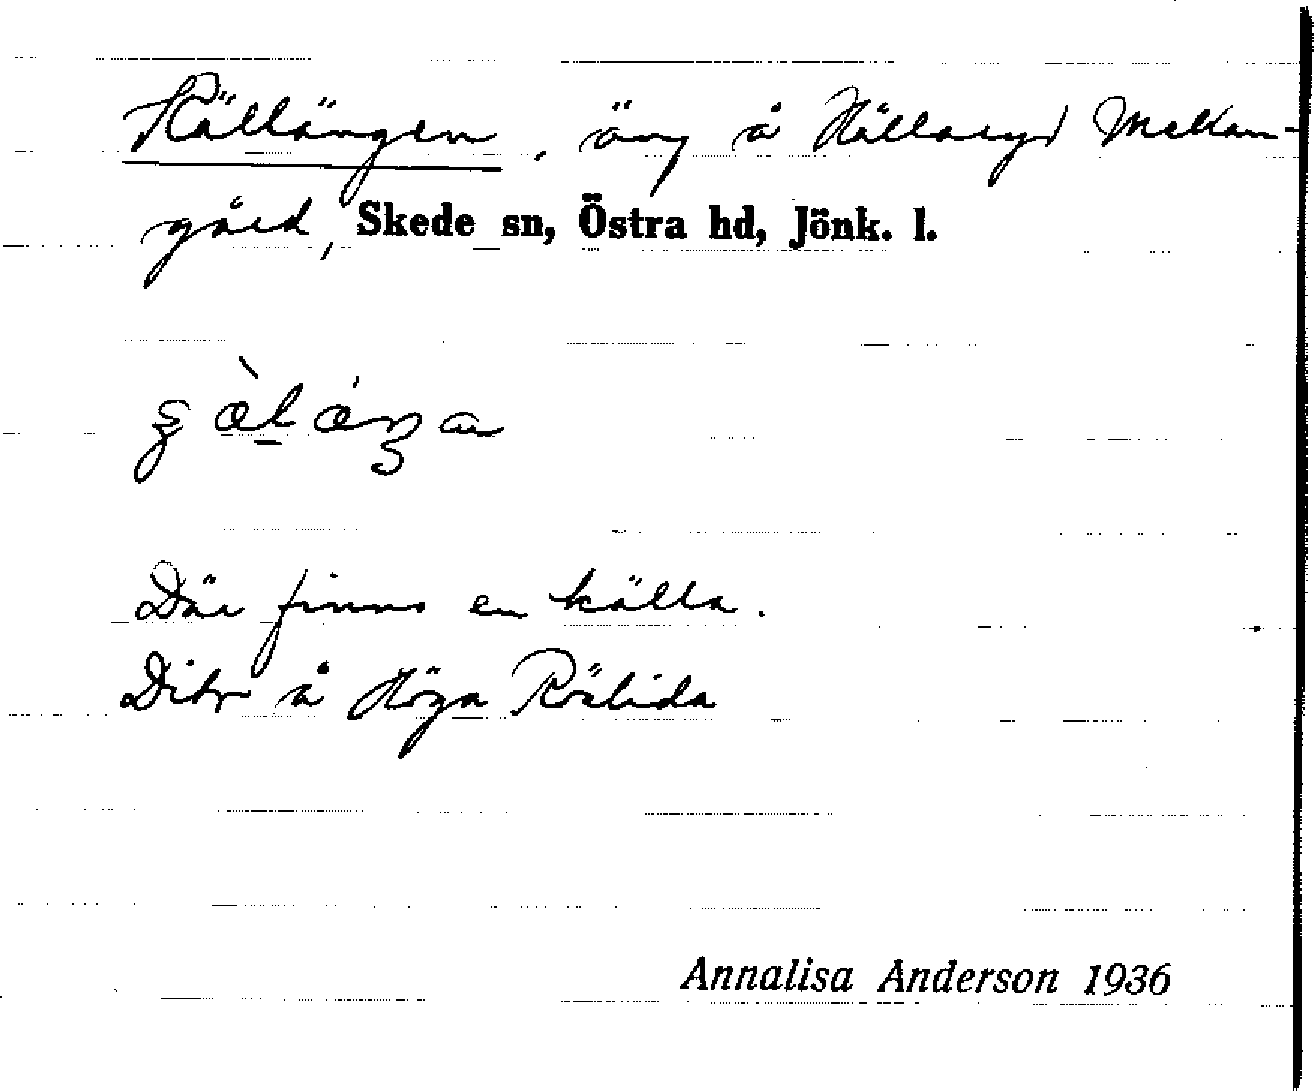 Källängen, äng å Hällaryd Mellan-
gård, Skede sn, Östra hd, Jönk. l.
Där finns en källa.
Dito å Höga Rölida
Annalisa Anderson 1936